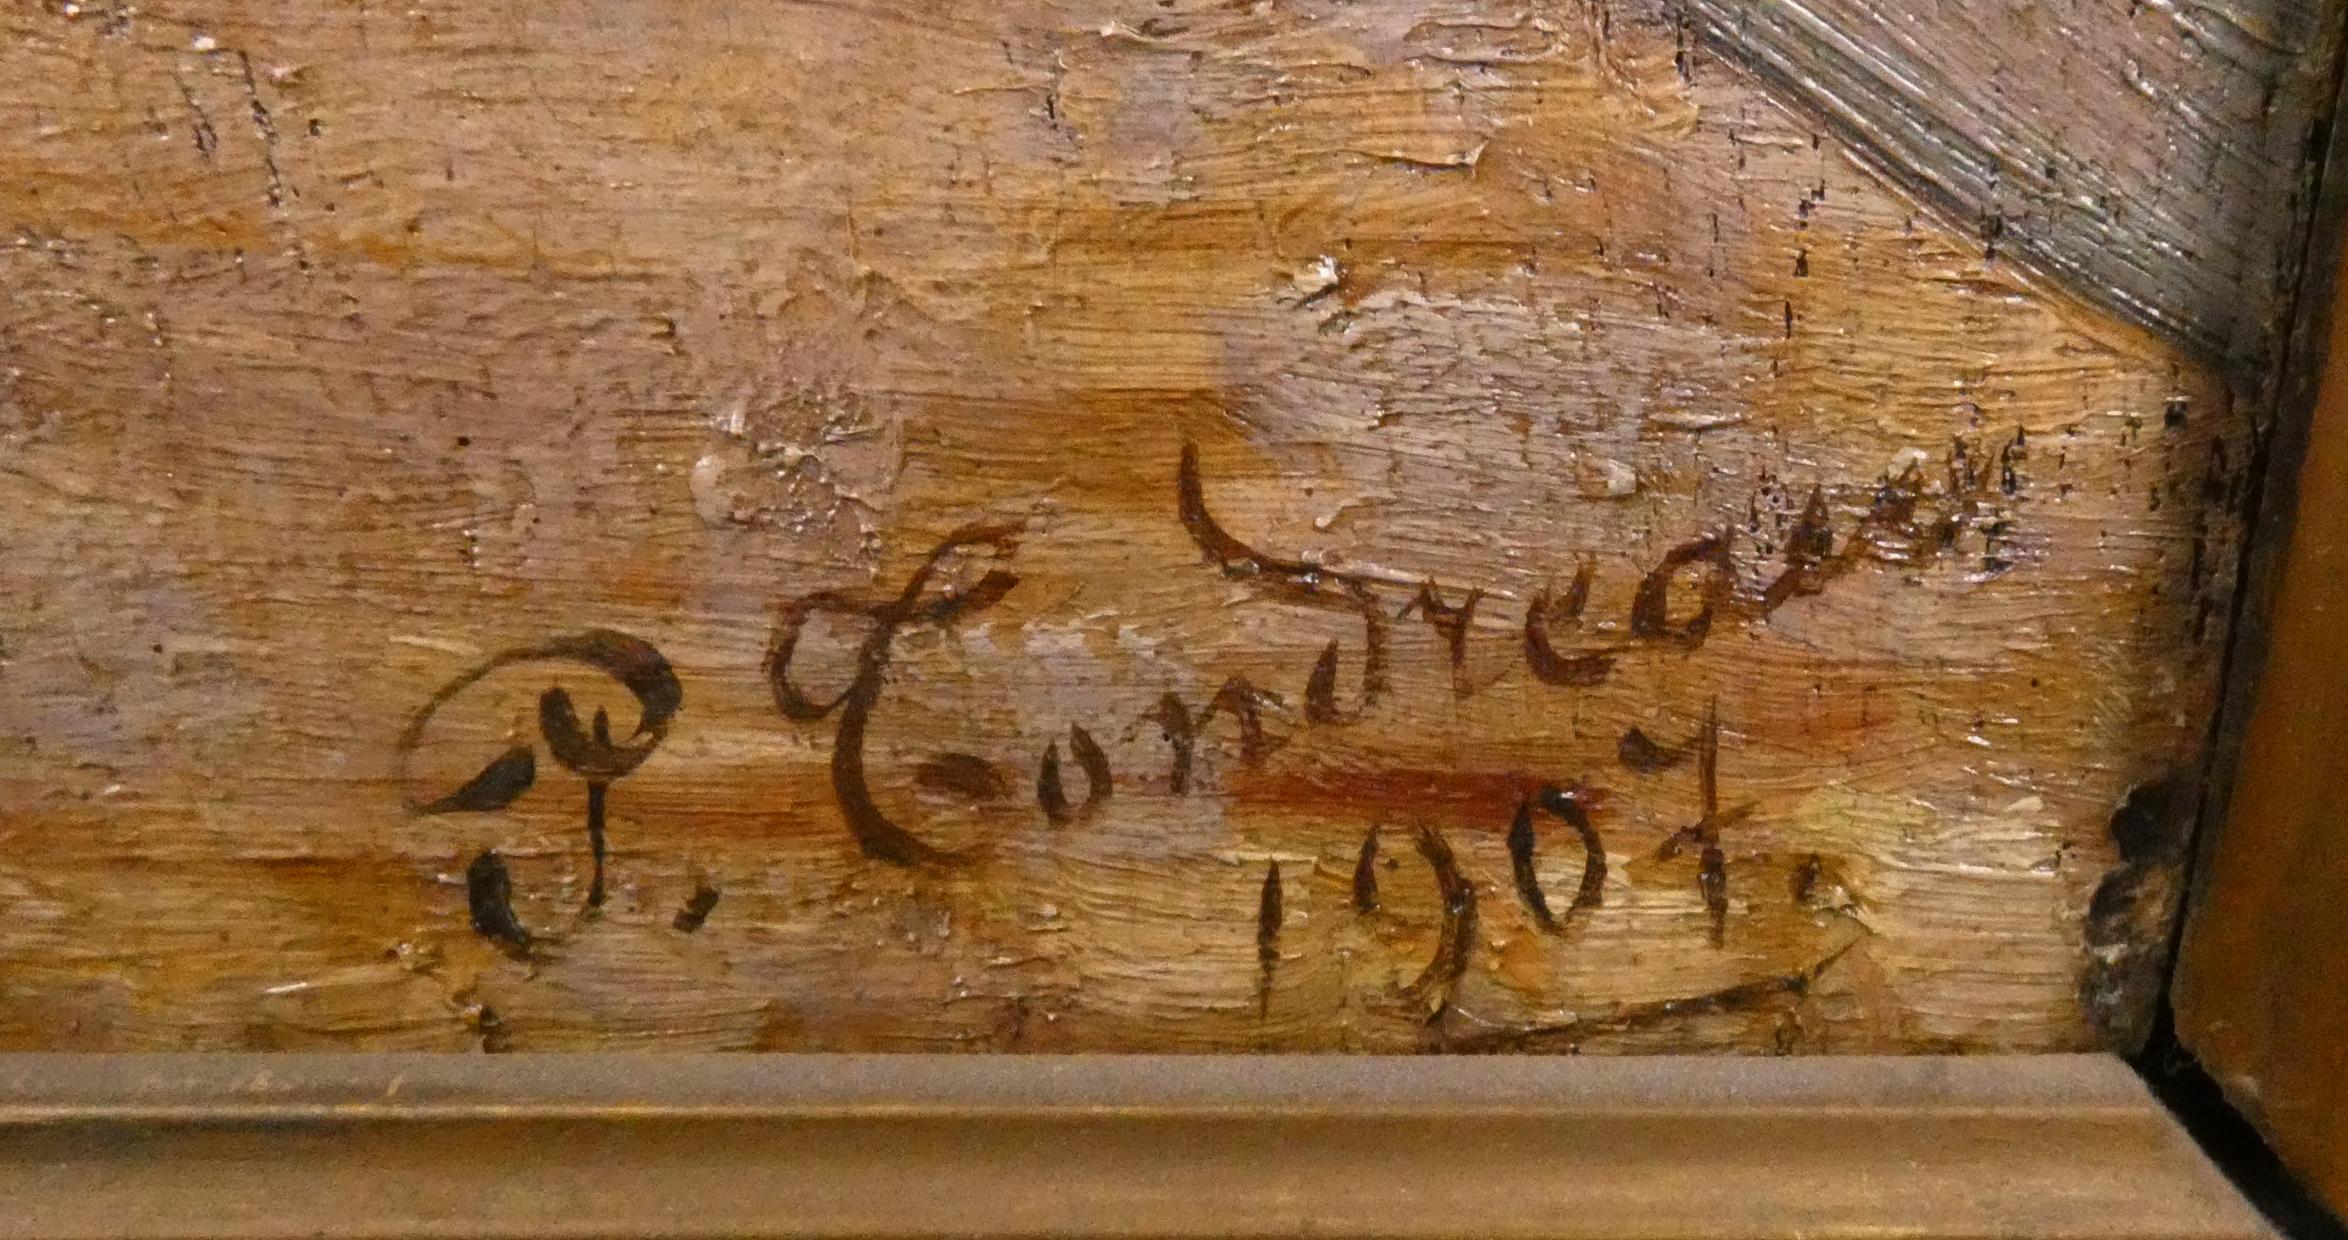 P. Condrea
1907.